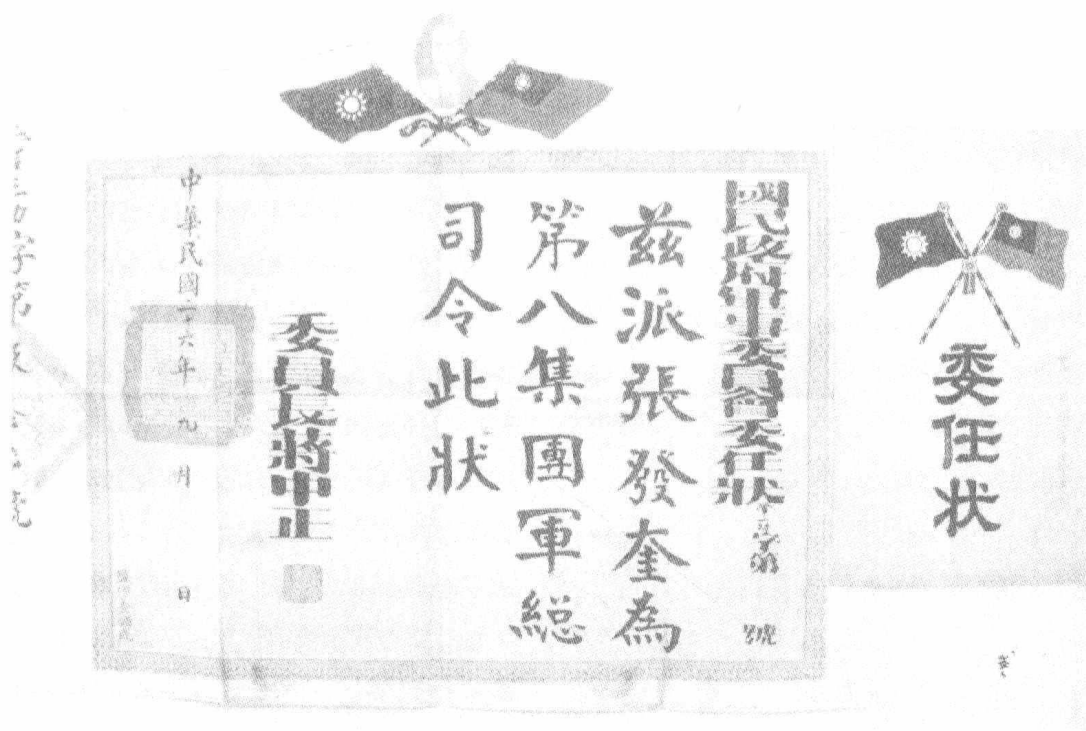 委任状
國民政府軍事委員會委任狀
號
茲派張發奎為
第八集團軍総
司令此狀
委員長蔣中正
中華民國二十六年九月日